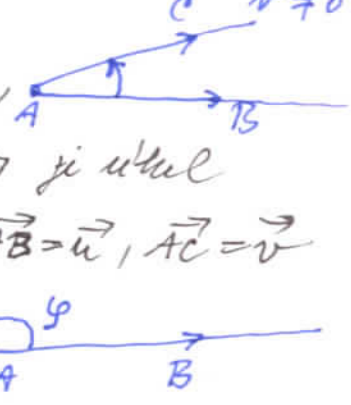 C
A B
je úhel
B⃗ = u⃗, AC⃗ = v⃗
φ
A B